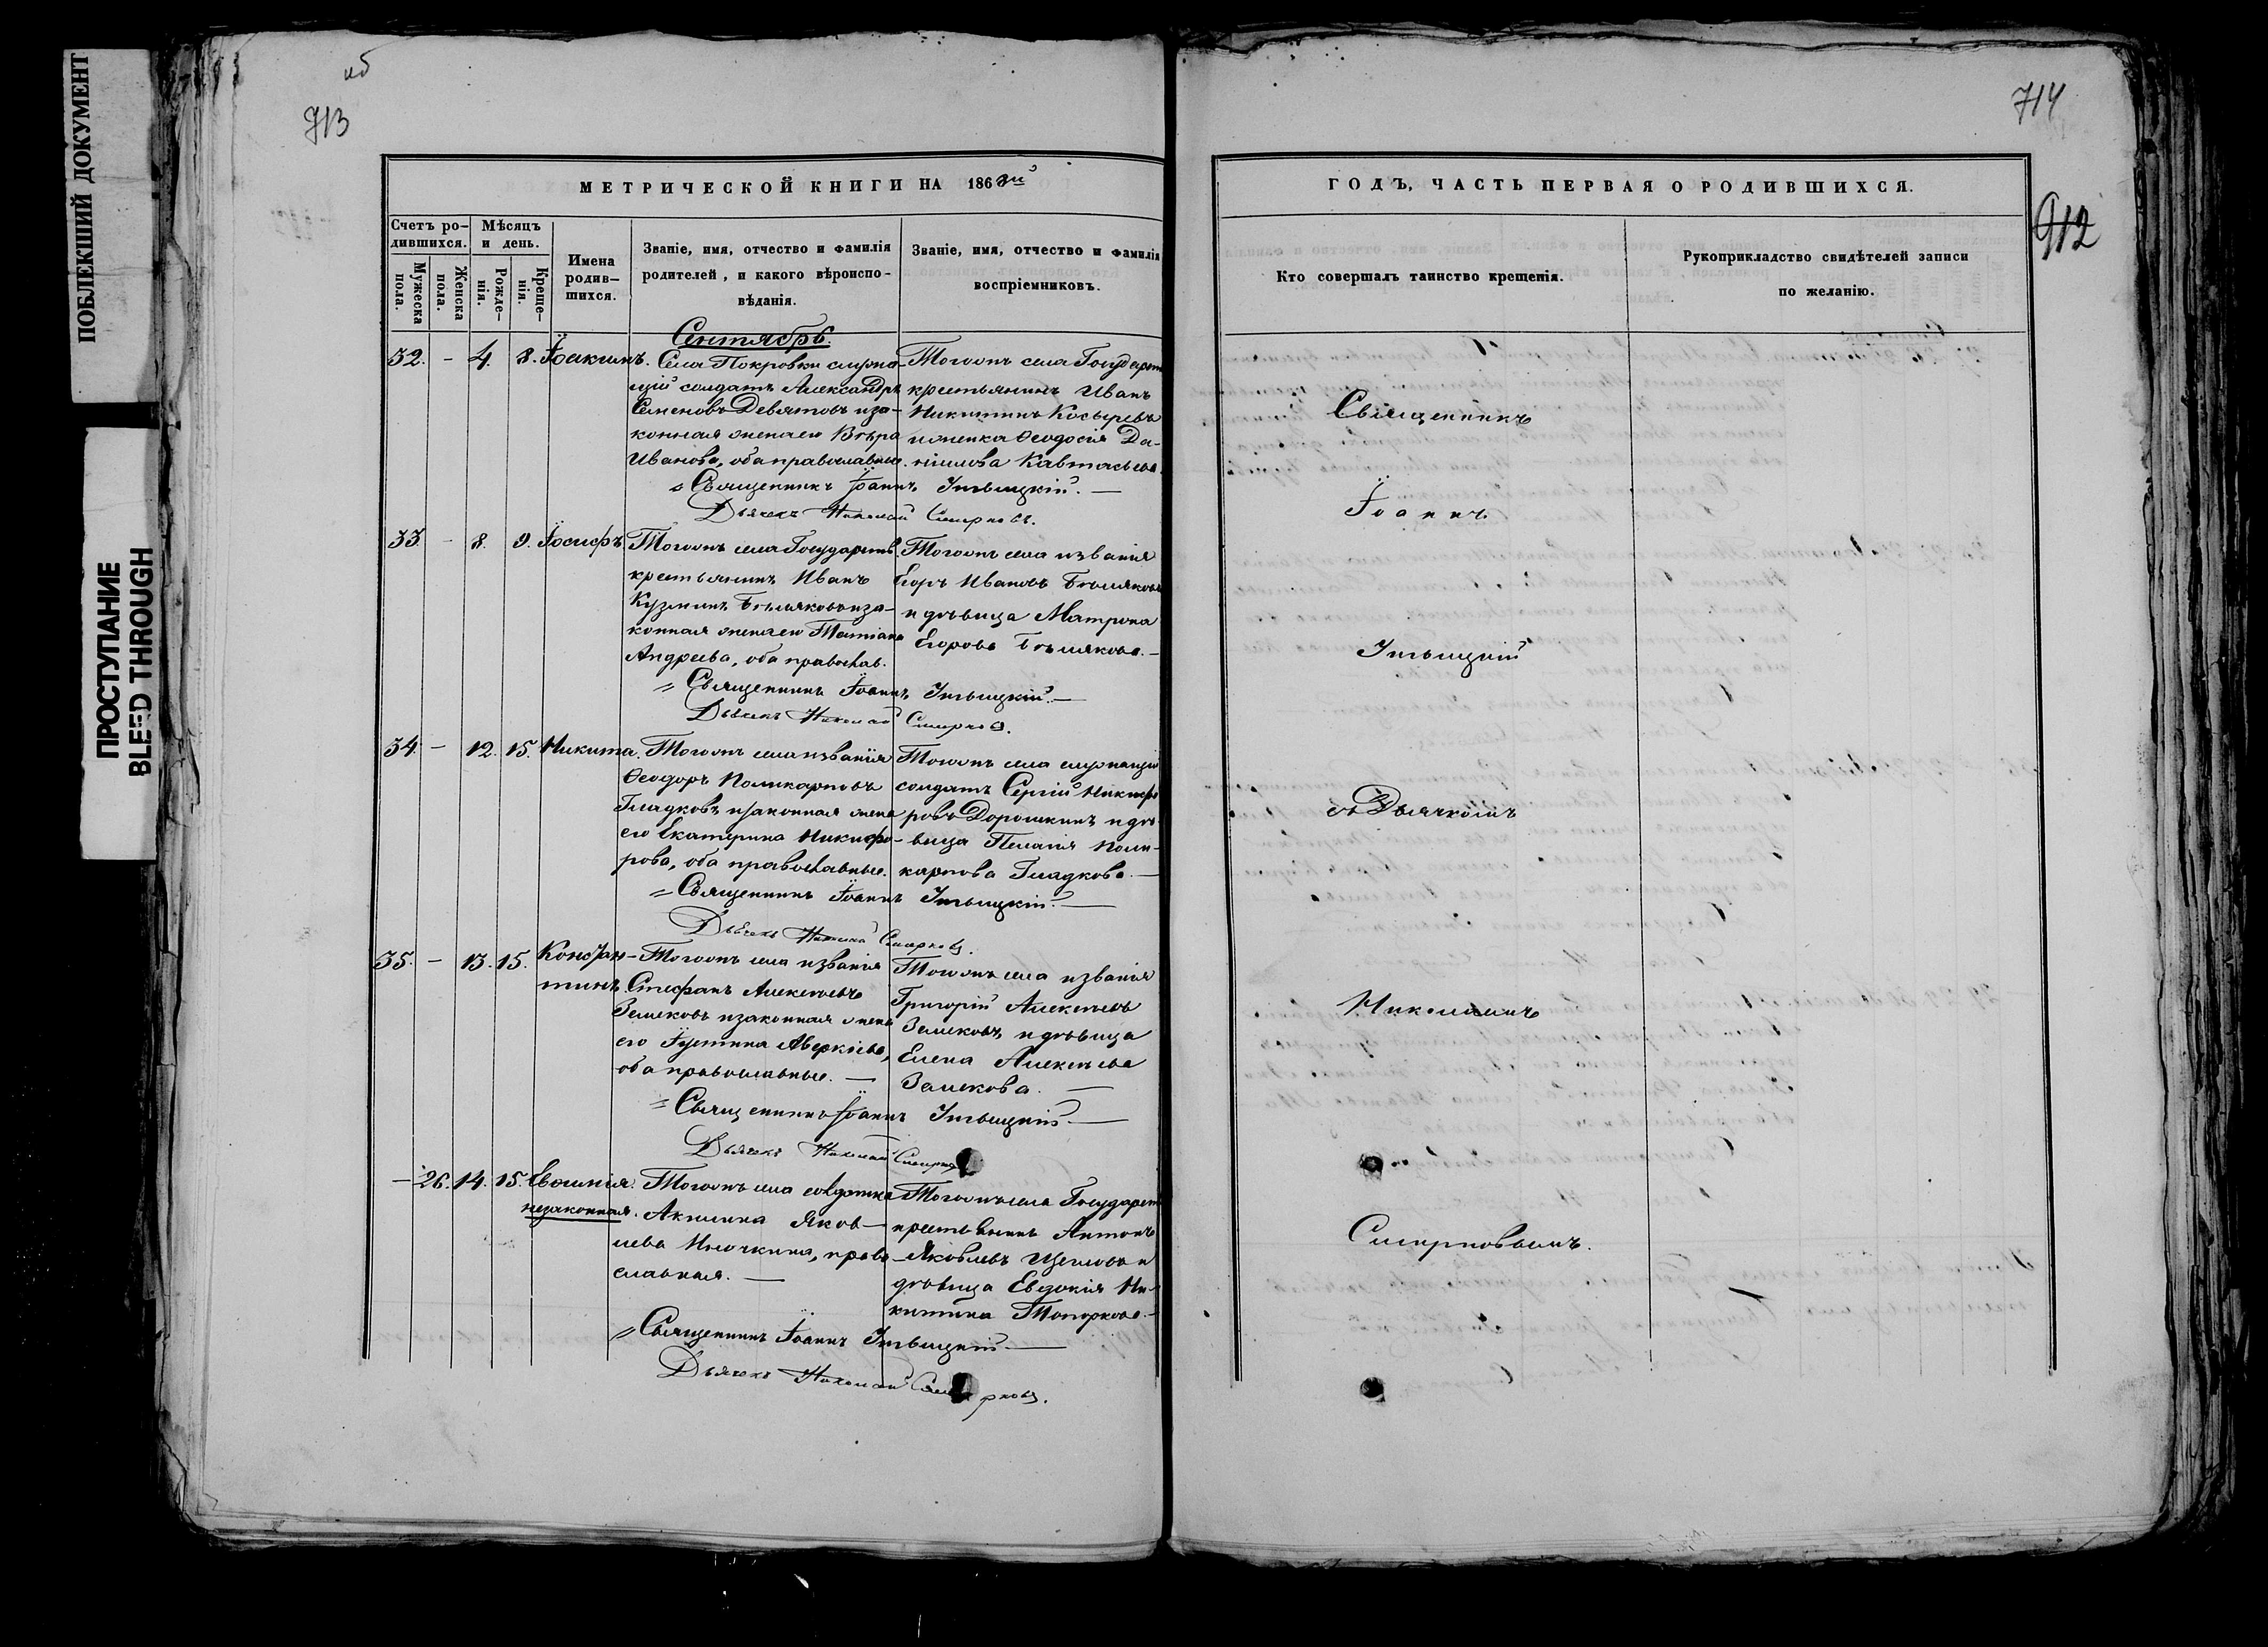 ПОБЛЕКШИЙ ДОКУМЕНТ
ПРОСТУПАНИЕ
BLEED THROUGH
об
713
МЕТРИЧЕСКОЙ КНИГИ НА 186
Счетъ ро-
дившихся.
Мѣсяцъ
и день.
Мужеска
пола.
Женска
пола.
Рожде-
нія.
Креще-
нія.
Имена
родив-
шихся.
Званіе, имя, отчество и фамилія
родителей, и какого вѣроиспо-
вѣданія.
Званіе, имя, отчество и фамилія
воспріемниковъ.
Сентябрь.
32. - 4. 8. Іоакимъ.
Села Покровки служа-
щій солдатъ Александръ
Семеновъ Девятовъ иза-
конная жена его Вѣра
Иванова, оба православные.
Тогожъ села Государст
крестьянинъ Иванъ
Никитинъ Косыревъ
и женка Ѳеодосія Да-
нилова
Священникъ Іоаннъ
Дьячекъ Николай Смирновъ.
33. - 8. 9. Іосифъ.
Тогожъ села Государств.
крестьянинъ Иванъ
Кузминъ Бѣляковъ иза-
конная жена его Татіана
Андреева, оба православ.
Тогожъ села изванія
Егоръ Ивановъ Бѣляковъ
и дѣвица Матрона
Егорова Бѣлякова.
Священникъ Іоаннъ
Дьячекъ Николай Смирновъ.
34. - 12. 15. Никита.
Тогожъ села изванія
Ѳеодоръ Поликарповъ
Гладковъ изаконная жена
его Екатерина Никифо-
рова, оба православные.
Тогожъ села служащій
солдатъ Сергій Никифо
ровъ Дорошкинъ и дѣ-
вица Пелагія Поли-
карпова Гладкова.
Священникъ Іоаннъ
Дьячекъ Николай Смирновъ.
35. - 13. 15. Констан-
тинъ.
Тогожъ села изванія
Стефанъ Алексѣевъ
Земсковъ изаконная жена
его Іустина Аверкіева,
оба православные.
Тогожъ села изванія
Григорій Алексѣевъ
Земсковъ, и дѣвица
Елена Алексѣева
Земскова.
Священникъ Іоаннъ
Дьячекъ Николай Смирновъ
- 26. 14. 15. Евѳимія.
незаконная.
Тогожъ села солдатка
Акилина Яков-
лева Илючкина, право
славная.
Тогожъ села Государст
крестьянинъ Антонъ
Яковлевъ Щегловъ и
дѣвица Евдокія Ни-
китина Топоркова.
Священникъ Іоаннъ
Дьячекъ Николай Смирновъ.
714
912
ГОДЪ, ЧАСТЬ ПЕРВАЯ О РОДИВШИХСЯ.
Кто совершалъ таинство крещенія.
Рукоприкладство свидѣтелей записи
по желанію.
Священникъ
Іоаннъ
съ Дьячкомъ
Николаемъ
Смирновымъ.